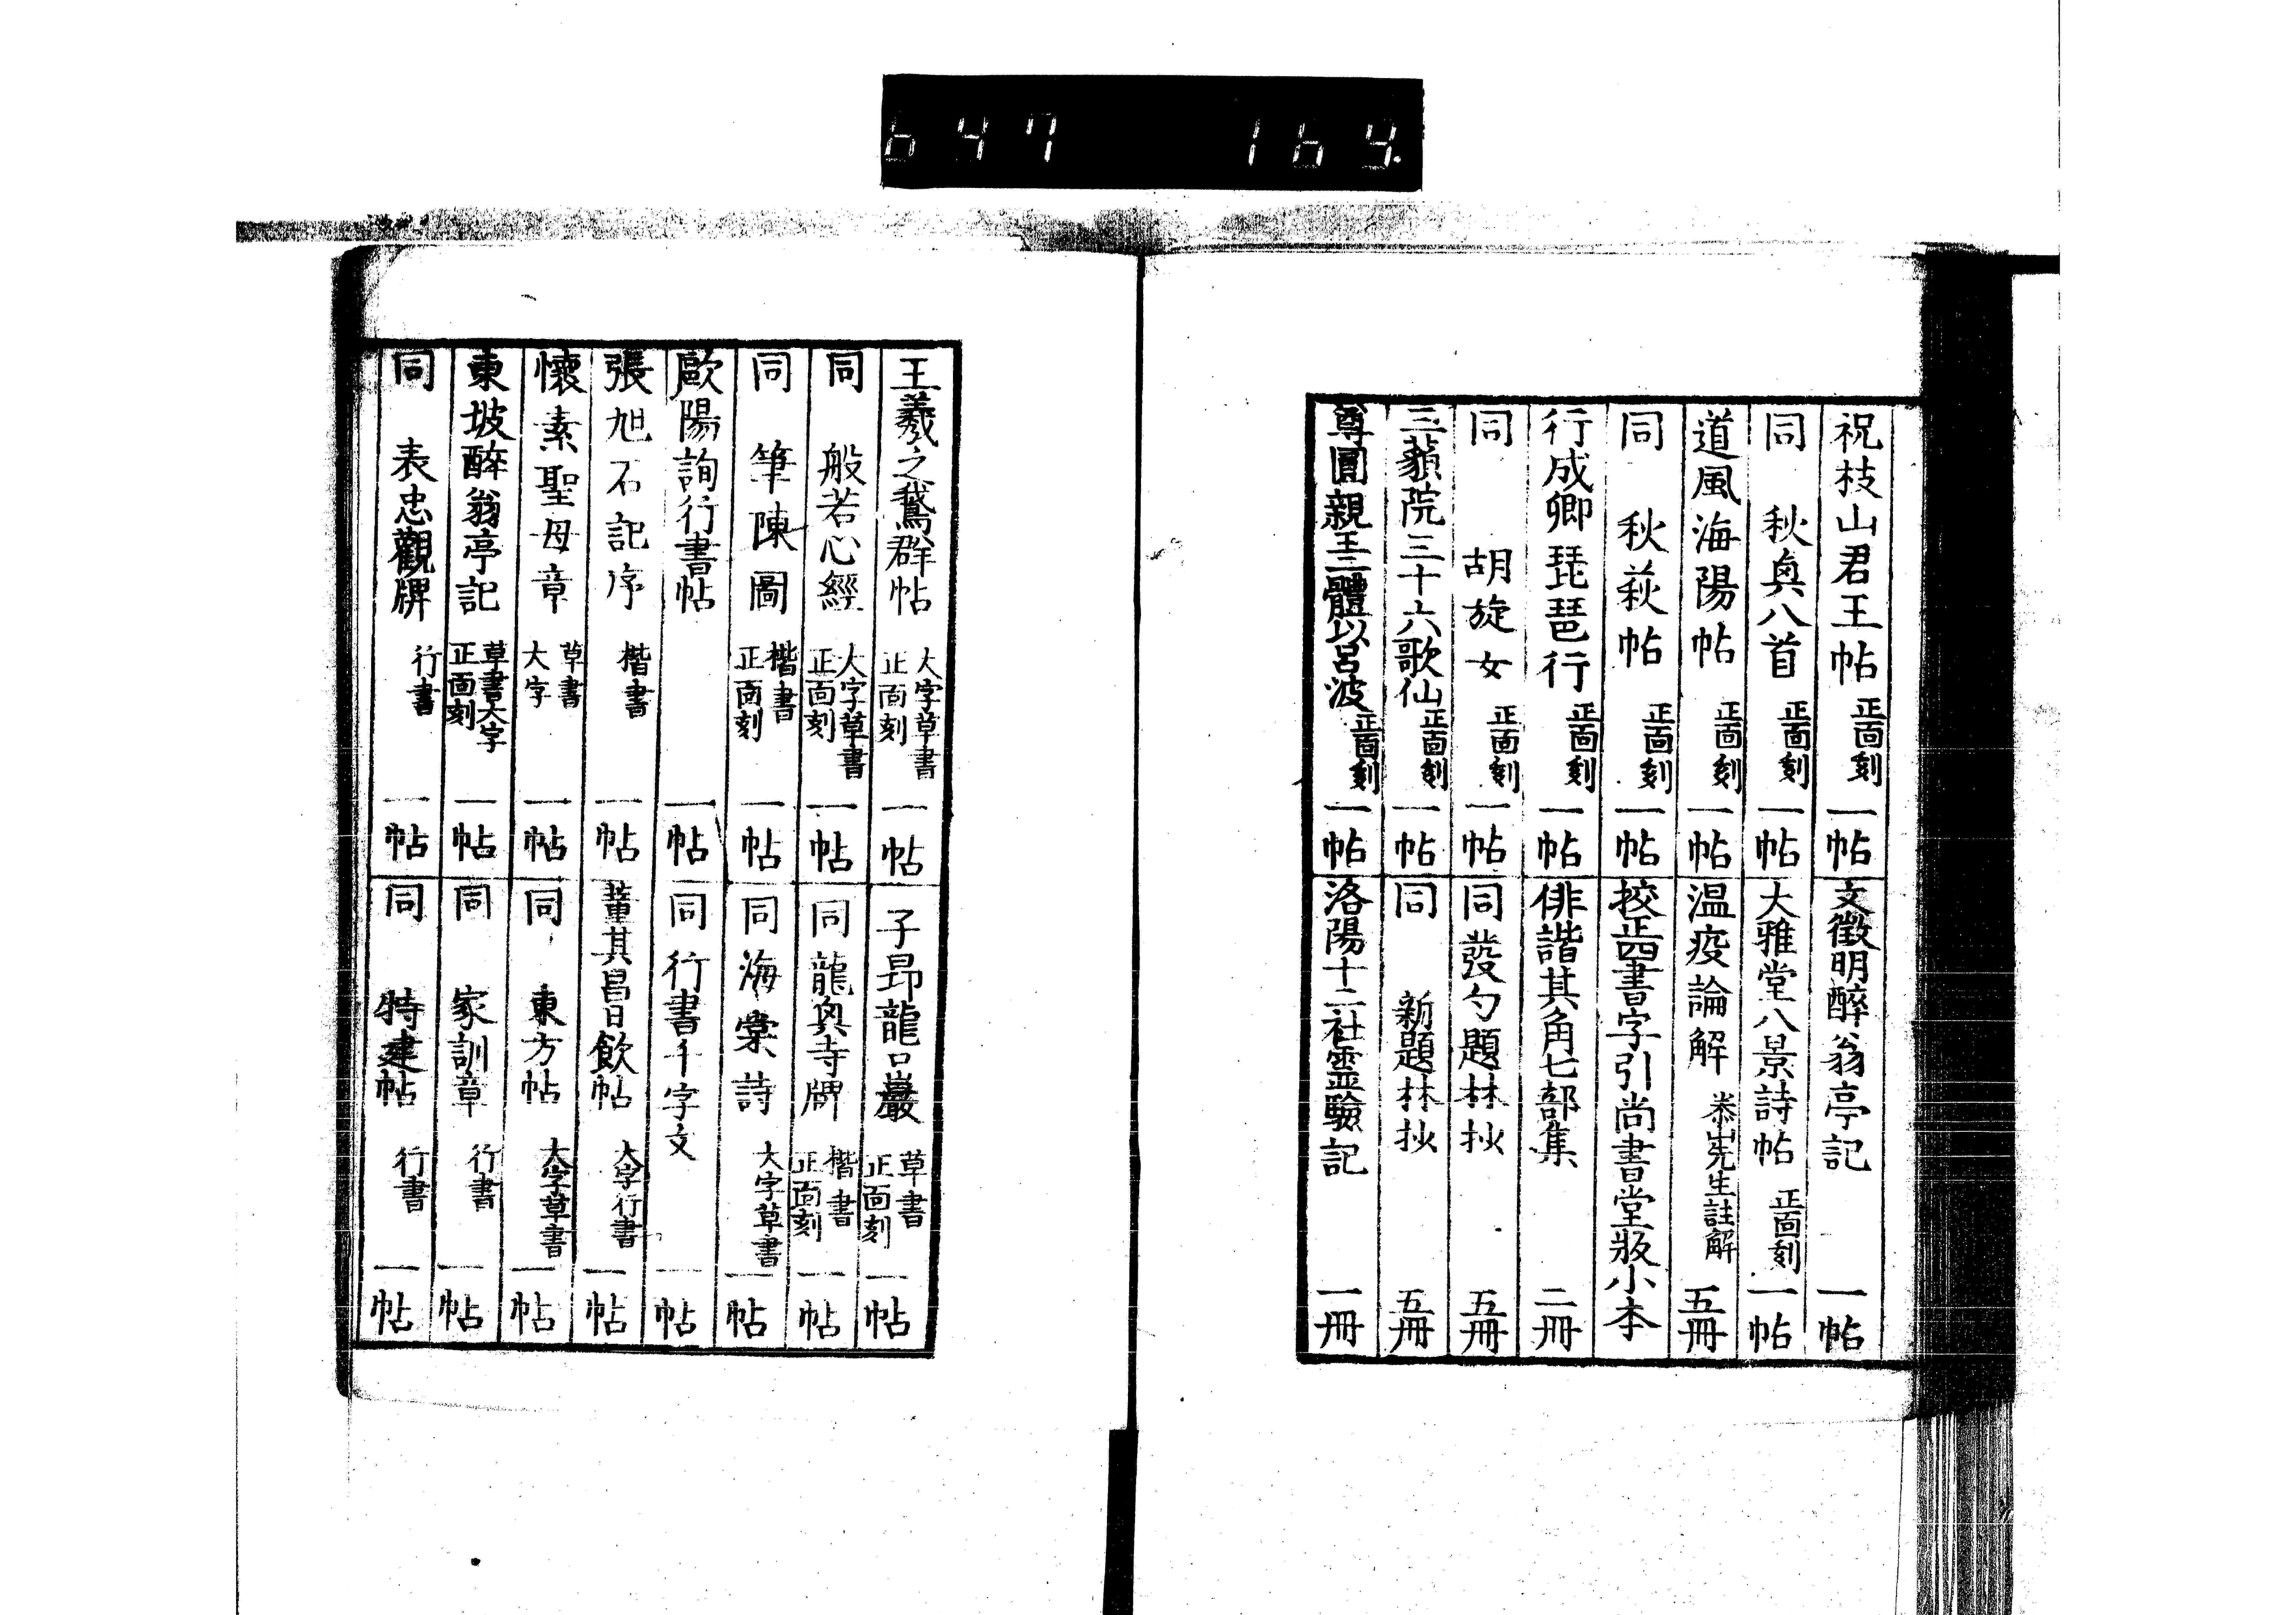 647 164
祝枝山君王帖 正面刻 一帖
同 秋興八首 正面刻 一帖
道風海陽帖 正面刻 一帖
同 秋萩帖 正面刻 一帖
行成卿琵琶行 正面刻 一帖
同 胡旋女 正面刻 一帖
三藐院三十六歌仙 正面刻 一帖
尊圓親王三體以呂波 正面刻 一帖
文徴明醉翁亭記 一帖
大雅堂八景詩帖 正面刻 一帖
温疫論解 先生註解 五冊
挍正四書字引尚書堂版小本
俳諧其角七部集 二冊
同發勺題林抄 五冊
同 新題林抄 五冊
洛陽十二社霊驗記 一冊
王羲之鵞群帖 大字草書 正面刻 一帖
同 般若心經 大字草書 正面刻 一帖
同 筆陳圖 楷書 正面刻 一帖
歐陽詢行書帖 一帖
張旭石記序 楷書 一帖
懷素聖母章 草書 大字 一帖
東坡醉翁亭記 草書大字 正面刻 一帖
同 表忠觀牌 行書 一帖
子昂龍口巖 草書 正面刻 一帖
同 龍興寺牌 楷書 正面刻 一帖
同 海棠詩 大字草書 一帖
同 行書千字文 一帖
董其昌日飲帖 大字行書 一帖
同 東方帖 大字草書 一帖
同 家訓章 行書 一帖
同 特建帖 行書 一帖